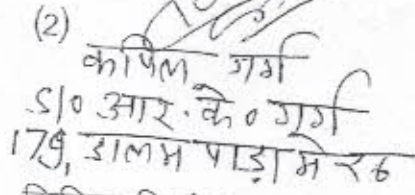 (2)
कपिल गर्ग
S/o आर. के० गर्ग
179, डालम पाड़ा मेरठ